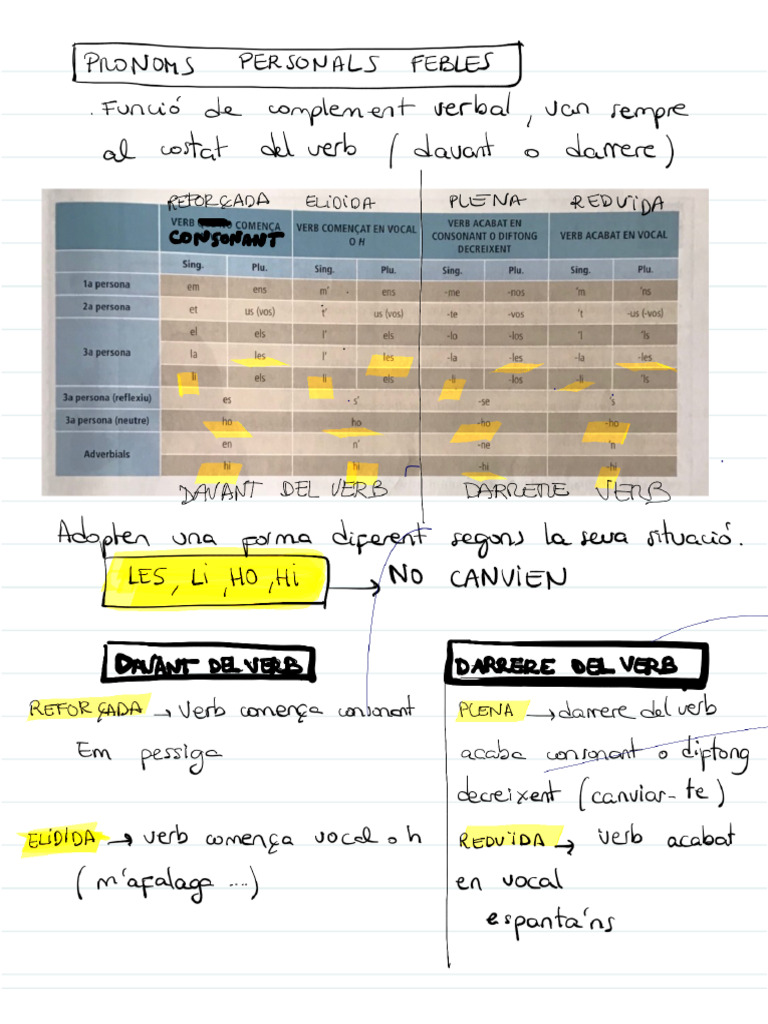 PRONOMS PERSONALS FEBLES
. Funció de complement verbal, van sempre
al costat del verb ( davant o darrere )
REFORÇADA ELIDIDA PLENA REDUIDA
VERB COMENÇA CONSONANT VERB COMENÇAT EN VOCAL O H VERB ACABAT EN CONSONANT O DIFTONG DECREIXENT VERB ACABAT EN VOCAL
Sing. Plu. Sing. Plu. Sing. Plu. Sing. Plu.
1a persona em ens m' ens -me -nos 'm 'ns
2a persona et us (vos) t' us (vos) -te -vos 't -us (-vos)
el els l' els -lo -los 'l 'ls
3a persona la les l' les -la -les -la -les
li els li els -li -los -li 'ls
3a persona (reflexiu) es s' -se 's
3a persona (neutre) ho ho -ho -ho
Adverbials en n' -ne 'n
hi hi -hi -hi
DAVANT DEL VERB DARRERE VERB
Adopten una forma diferent segons la seva situació.
LES, Li, HO, Hi → NO CANVIEN
DAVANT DEL VERB
REFORÇADA → Verb comença consonant
Em pessiga
ELIDIDA → verb comença vocal o h
( m'afalaga .... )
DARRERE DEL VERB
PLENA → darrere del verb
acaba consonant o diptong
decreixent ( canviar-te )
REDUÏDA → verb acabat
en vocal
espanta'ns